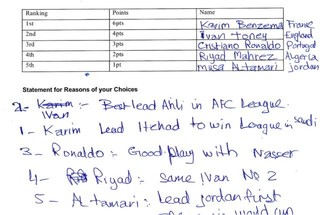 Ranking Points Name
1st 6pts Karim Benzema France
2nd 4pts Ivan Toney England
3rd 3pts Cristiano Ronaldo Portugal
4th 2pts Riyad Mahrez Algeria
5th 1pt musa Al-tamari jordan
Statement for Reasons of your Choices
2- Karim Ivan :- Best lead Ahli in AFC League.
1- Karim Lead Itehad to win League in saudi
3- Ronaldo :- Good play with Nasser
4- Riyad :- same Ivan No 2
5- Al tamari : Lead jordan first